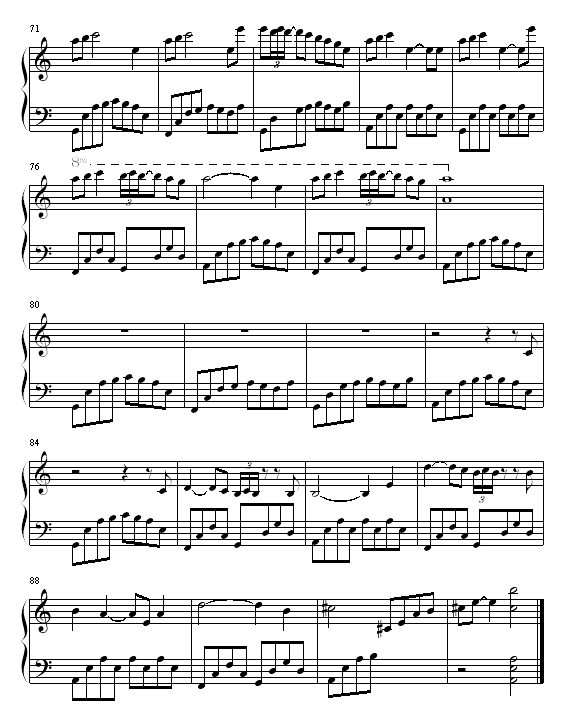 71
3
76
8va
3
3
80
84
3
3
88